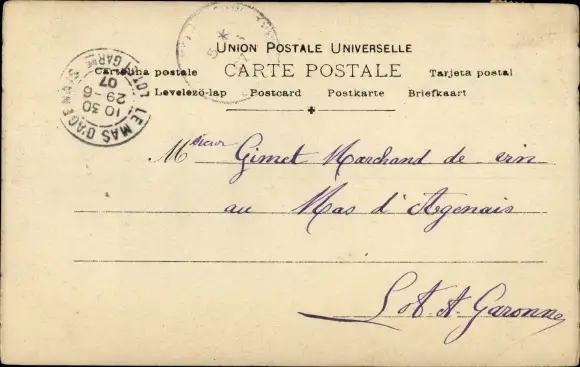 UNION POSTALE UNIVERSELLE
Cartolina postale CARTE POSTALE Tarjeta postal
Levelező-lap Postcard Postkarte Briefkaart
LE MAS D'AGENAIS
LOT ET GARNE
10 30
29-6
07
Monsieur Gimet Marchand de crin
au Mas d'Agenais
Lot. et. Garonne